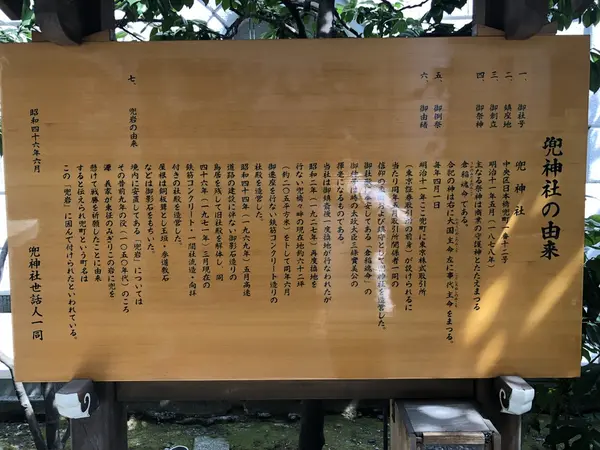 兜神社の由来
一、御社号 兜神社
二、鎮座地 中央区日本橋兜町一番十二号
三、御創立 明治十一年五月(一八七八年)
四、御祭神 主なる祭神は商業の守護神とたたえまつる
倉稲魂命である。
合祀の神は右に大国主命 左に事代主命をまつる。
五、御例祭 毎年四月一日
六、御由緒 明治十一年ここ兜町に東京株式取引所
(東京証券取引所の前身)が設けられるに
当たり同年五月取引関係者一同の
信仰の象徴および鎮守として兜神社を造営した。
御社殿に奉安してある「倉稲魂命」の
御神号は時の太政大臣三條實美公の
揮毫になるものである
当社は御鎮座後一度換地が行なわれたが
昭和二年(一九二七年)再度換地を
行ない兜橋々畔の現在地約六十二坪
(約二〇五平方米)をトして同年六月
御遷座を行ない鉄筋コンクリート造りの
社殿を造営した。
昭和四十四年(一九六九年)五月高速
道路の建設に伴い御影石造りの
鳥居を残して旧社殿を解体し 同
四十六年(一九七一年)三月現在の
鉄筋コンクリート・一間社流造・向拝
付きの社殿を造営した。
屋根は銅板葺とし玉垣・参道敷石
などは御影石をもちいた。
七、兜岩の由来 境内に安置してある「兜岩」については
その昔前九年の役(一〇五〇年代)のころ
源 義家が東征のみぎりこの岩に兜を
懸けて戦勝を祈願したことに由来
すると伝えられ兜町という町名は
この「兜岩」に因んで付けられたといわれている。
昭和四十六年六月
兜神社世話人一同